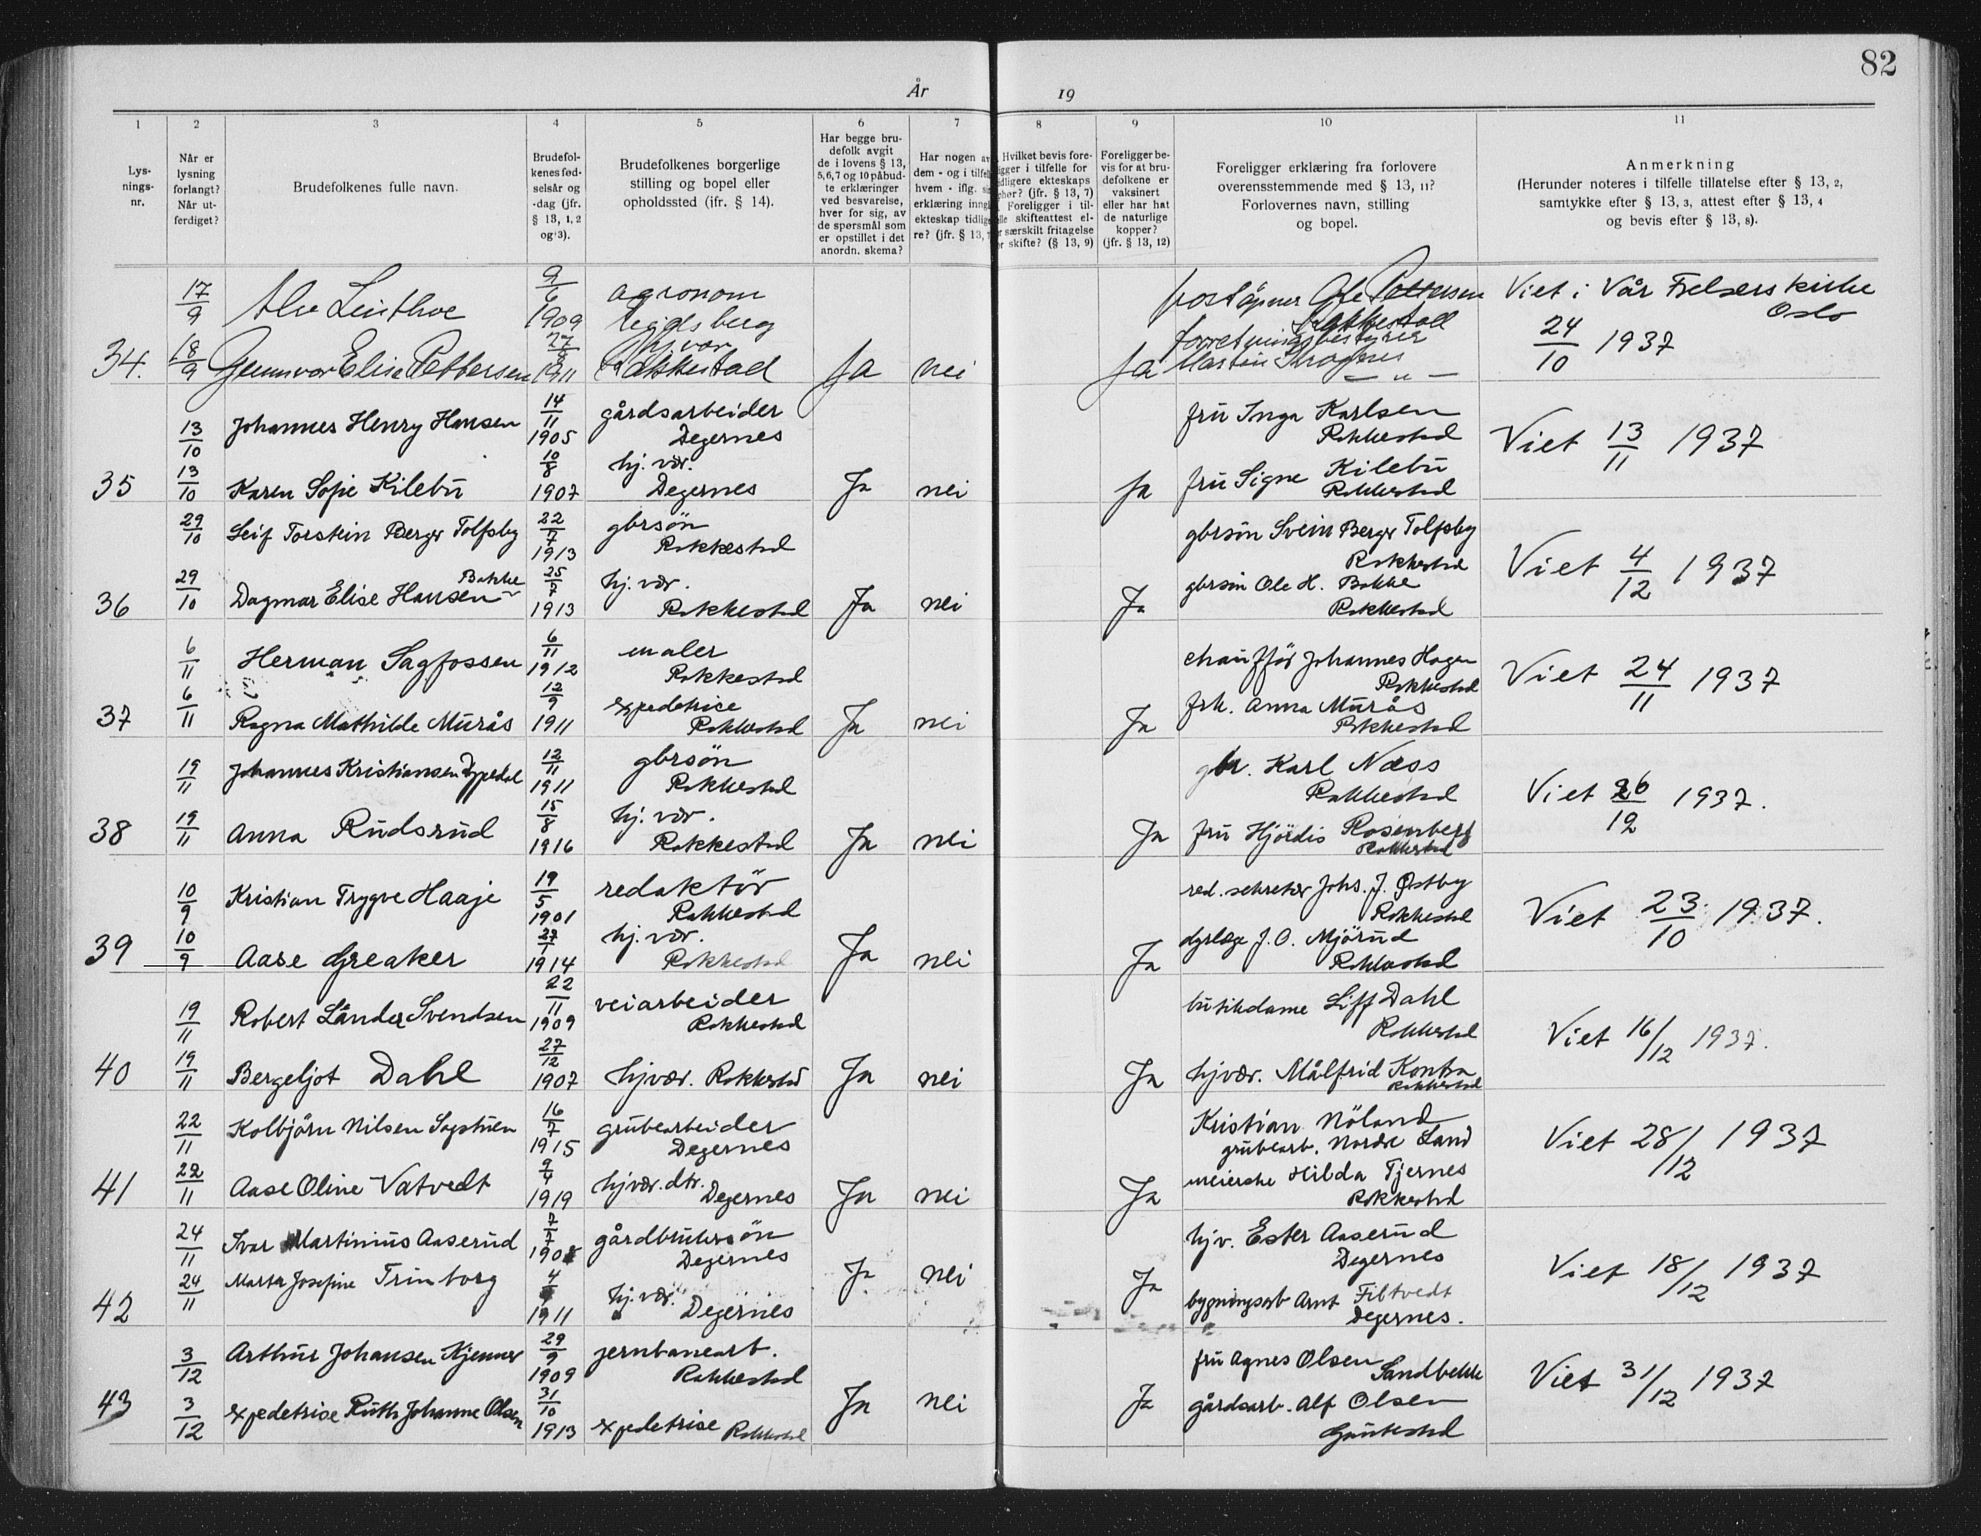 82
År 19
1 2 3 4 5 6 7 8 9 10 11
Lys-
nings-
nr.
Når er
lysning
forlangt?
Når ut-
ferdiget?
Brudefolkenes fulle navn.
Brudefol-
kenes fød-
selsår og
-dag (jfr.
§ 13, 1, 2
og 3).
Brudefolkenes borgerlige
stilling og bopel eller
opholdssted (ifr. § 14).
Har begge bru-
defolk avgit
de i lovens § 13,
5,6,7 og 10 påbud-
te erklæringer
ved besvarelse,
hver for sig, av
de spørsmål som
er opstillet i det
anordn. skema?
Har nogen av
dem - og i tilfel
hvem - iflg. si
erklæring inngå
ekteskap tidlige
re? (jfr. § 13,
Hvilket bevis fore-
ligger i tilfelle for
tidligere ekteskaps
ophør? (jfr. § 13, 7)
Foreligger i til-
felle skifteattest el-
er særskilt fritagelse
or skifte? (§ 13, 9)
Foreligger be-
vis for at bru-
defolkene er
vaksinert
eller har hat
de naturlige
kopper?
(jfr. § 13, 12)
Foreligger erklæring fra forlovere
overensstemmende med § 13, 11?
Forlovernes navn, stilling
og bopel.
Anmerkning
(Herunder noteres i tilfelle tillatelse efter § 13, 2,
samtykke efter § 13, 3, attest efter § 13, 4
og bevis efter § 13, 8).
17/9 Alv Linthoe 9/6 1909 agronom poståpner Ole Pettersen Viet i Vår Frelsers kirke
Rakkestad Oslo
34. 18/9 Gunnvor Elise Pettersen 1911 hj.vær Rakkestad Ja nei Ja forretningsbestyrer 24/10 1937
— " —
13/10 Johannes Henry Hansen 14/11 1905 gårdsarbeider Degernes fru Inga Karlsen Rakkestad Viet 13/11 1937
35 13/10 Karen Sofie Kilebu 10/8 1907 hj. vær. Degernes Ja nei Ja fru Signe Kilebu Rakkestad
29/10 Leif Torstein Berger Tolfsby 22/7 1913 gbrsøn Rakkestad gbrsön Svein Berger Tolfsby Rakkestad Viet 4/12 1937
36 29/10 Dagmar Elise Hansen Bakke 25/7 1913 hj. vær. Rakkestad Ja nei Ja gbrsön Ole H. Bakke Rakkestad
6/11 Herman Sagfossen 6/11 1912 maler Rakkestad chaufför Johannes Hagen Rakkestad Viet 24/11 1937
37 6/11 Ragna Mathilde Murås 12/9 1911 expedetrise Rakkestad Ja nei Ja frk. Anna Murås Rakkestad
19/11 Johannes Kristiansen Dypedal 12/11 1911 gbrsøn Rakkestad gbr. Karl Næss Rakkestad Viet 26/12 1937.
38 19/11 Anna Rudsrud 15/8 1916 hj. vær. Rakkestad Ja nei Ja fru Hjördis Rosenberg Rakkestad
10/9 Kristian Trygve Haaje 19/5 1901 redaktör Rakkestad red. sekretær Johs. J. Østby Rakkestad Viet 23/10 1937.
39 10/9 Aase Greaker 27/1 1914 hj. vær. Rakkestad Ja nei Ja dyrlæge J. O. Mjörud Rakkestad
19/11 Robert Lånder Svendsen 22/11 1909 veiarbeider Rakkestad butikdame Liff Dahl Rakkestad Viet 16/12 1937.
40 19/11 Bergeljot Dahl 27/12 1907 hjvær. Rakkestad Ja nei Ja hjvær. Målfrid Rakkestad
22/11 Kolbjörn Nilsen Sagstuen 16/7 1915 grubearbeider Degernes Kristian Nöland grubearb. Nordre Land Viet 28/12 1937
41 22/11 Aase Oline Vatvedt 9/4 1919 hjvær. dtr. Degernes Ja nei Ja meierske Hilda Tjernes Rakkestad
24/11 Ivar Martinius Aaserud 7/7 gårdbrukersön Degernes hjv. Ester Aaserud Degernes Viet 18/12 1937
42 24/11 Marta Josefine Trinborg 1911 hj. vær. Degernes Ja nei Ja bygningsarb Arnt Filtvedt Degernes.
3/12 Arthur Johansen Kjenner 29/9 1909 jernbanearb. Rakkestad fru Agnes Olsen Sandbekk Viet 31/12 1937
43 3/12 expedetrise Ruth Johanne Olsen 31/10 1913 expedetrise Rakkestad Ja nei Ja gårdsarb. Alf Olsen